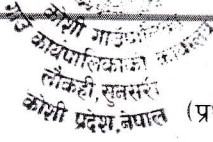 कोशी गाउँपालिका
गाउँ कार्यपालिकाको कार्यालय
लौकही, सुनसरी
कोशी प्रदेश, नेपाल
(प्र